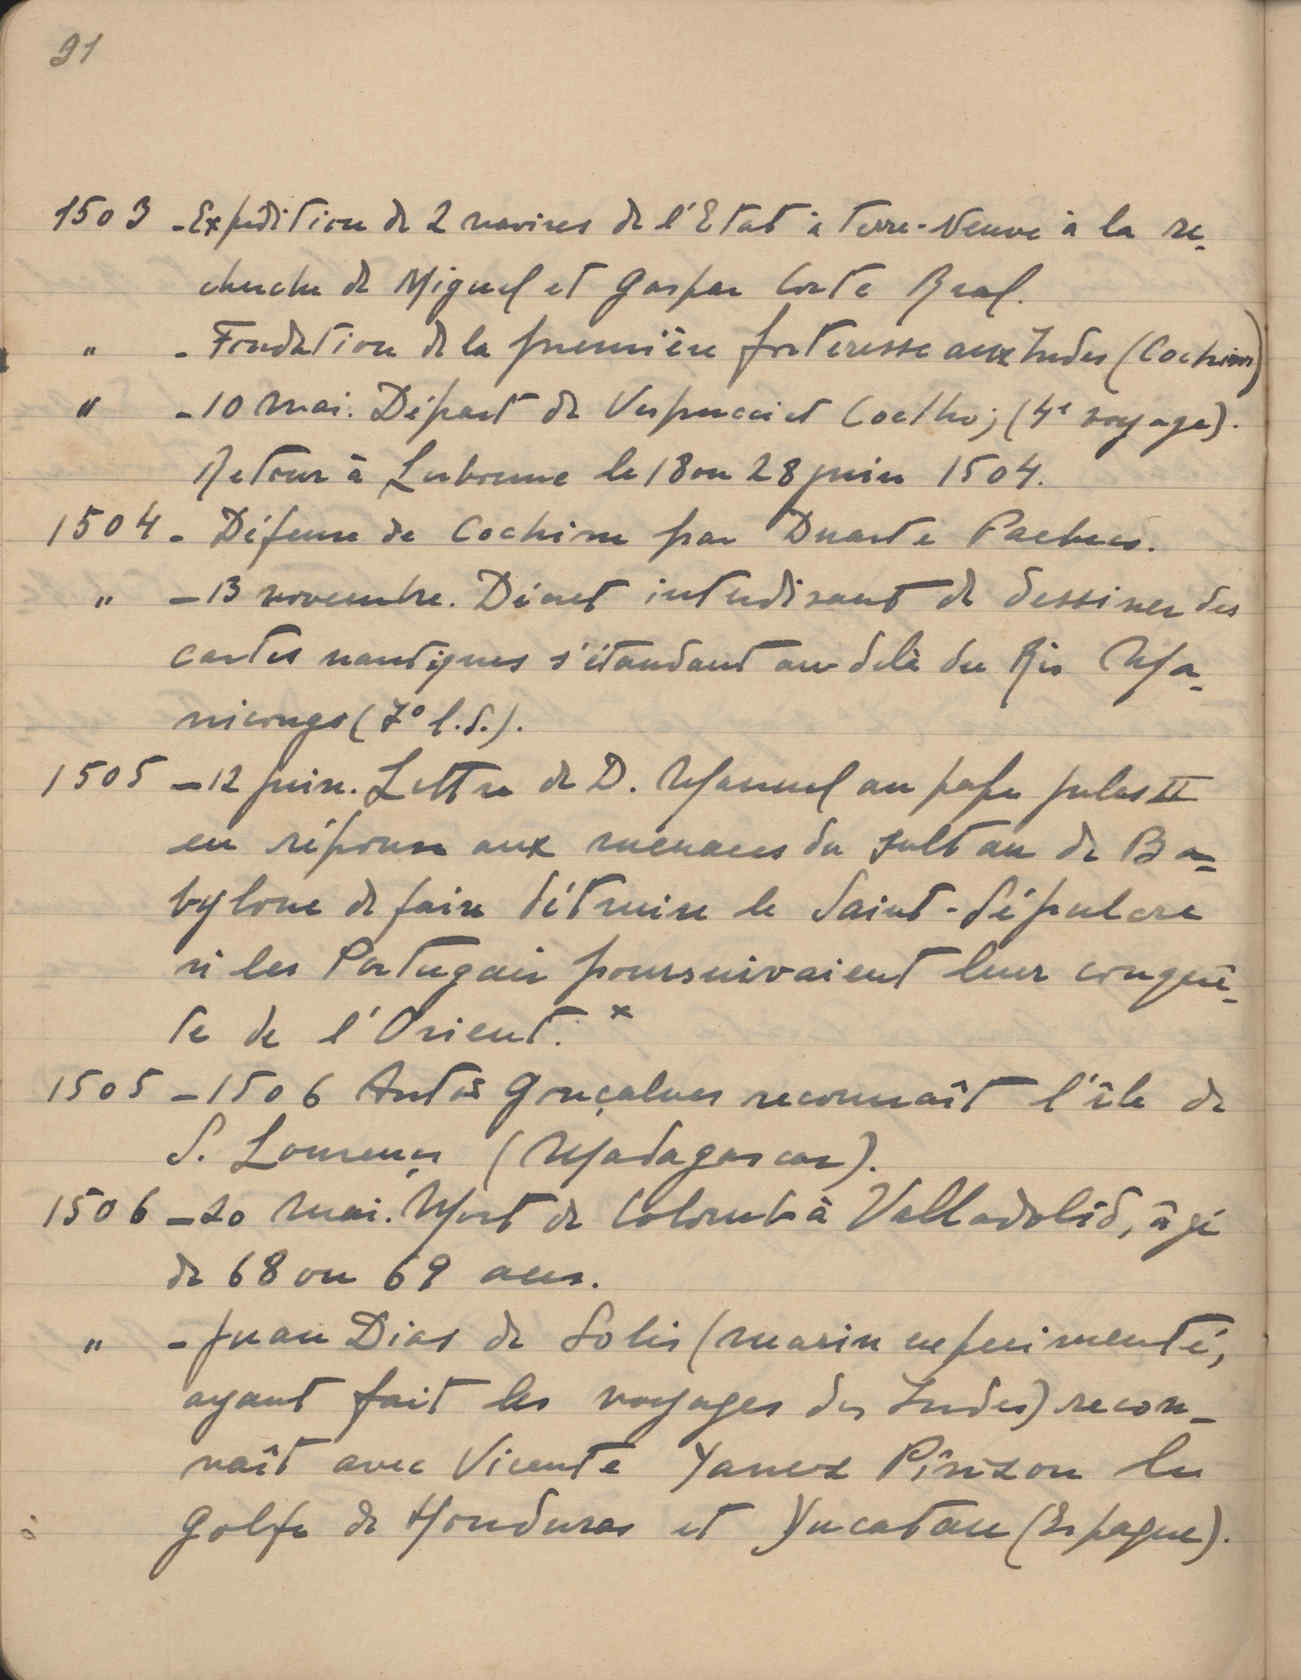 21
1503 - Expédition de 2 navires de l'Etat à Terre-Neuve à la re-
cherche de Miguel et Gaspar Corte Real.
" - Fondation de la première forteresse aux Indes (Cochim)
" - 10 mai. Départ de Vespucci et Coelho; (4e voyage).
Retour à Lisbonne le 18 ou 28 juin 1504.
1504 - Défense de Cochim par Duarte Pacheco.
" - 13 novembre. Décret interdisant de dessiner des
cartes nautiques s'étandant au delà du Rio Ma-
nicongo (7º l.S.).
1505 - 12 juin. Lettre de D. Manuel au pape Jules II
en réponse aux menaces du sultan de Ba-
bylone de faire détruire le Saint-Sépulcre
si les Portugais poursuivaient leur conquê-
te de l'Orient. x
1505 - 1506 Antão Gonçalves reconnaît l'île de
S. Lourenço (Madagascar).
1506 - 20 mai. Mort de Colomb à Valladolid, âgé
de 68 ou 69 ans.
" - Juan Dias de Solis (marin expérimenté,
ayant fait les voyages des Indes) recon-
naît avec Vicente Yanez Pinzon le
golfe de Honduras et Yucatan (Espagne).